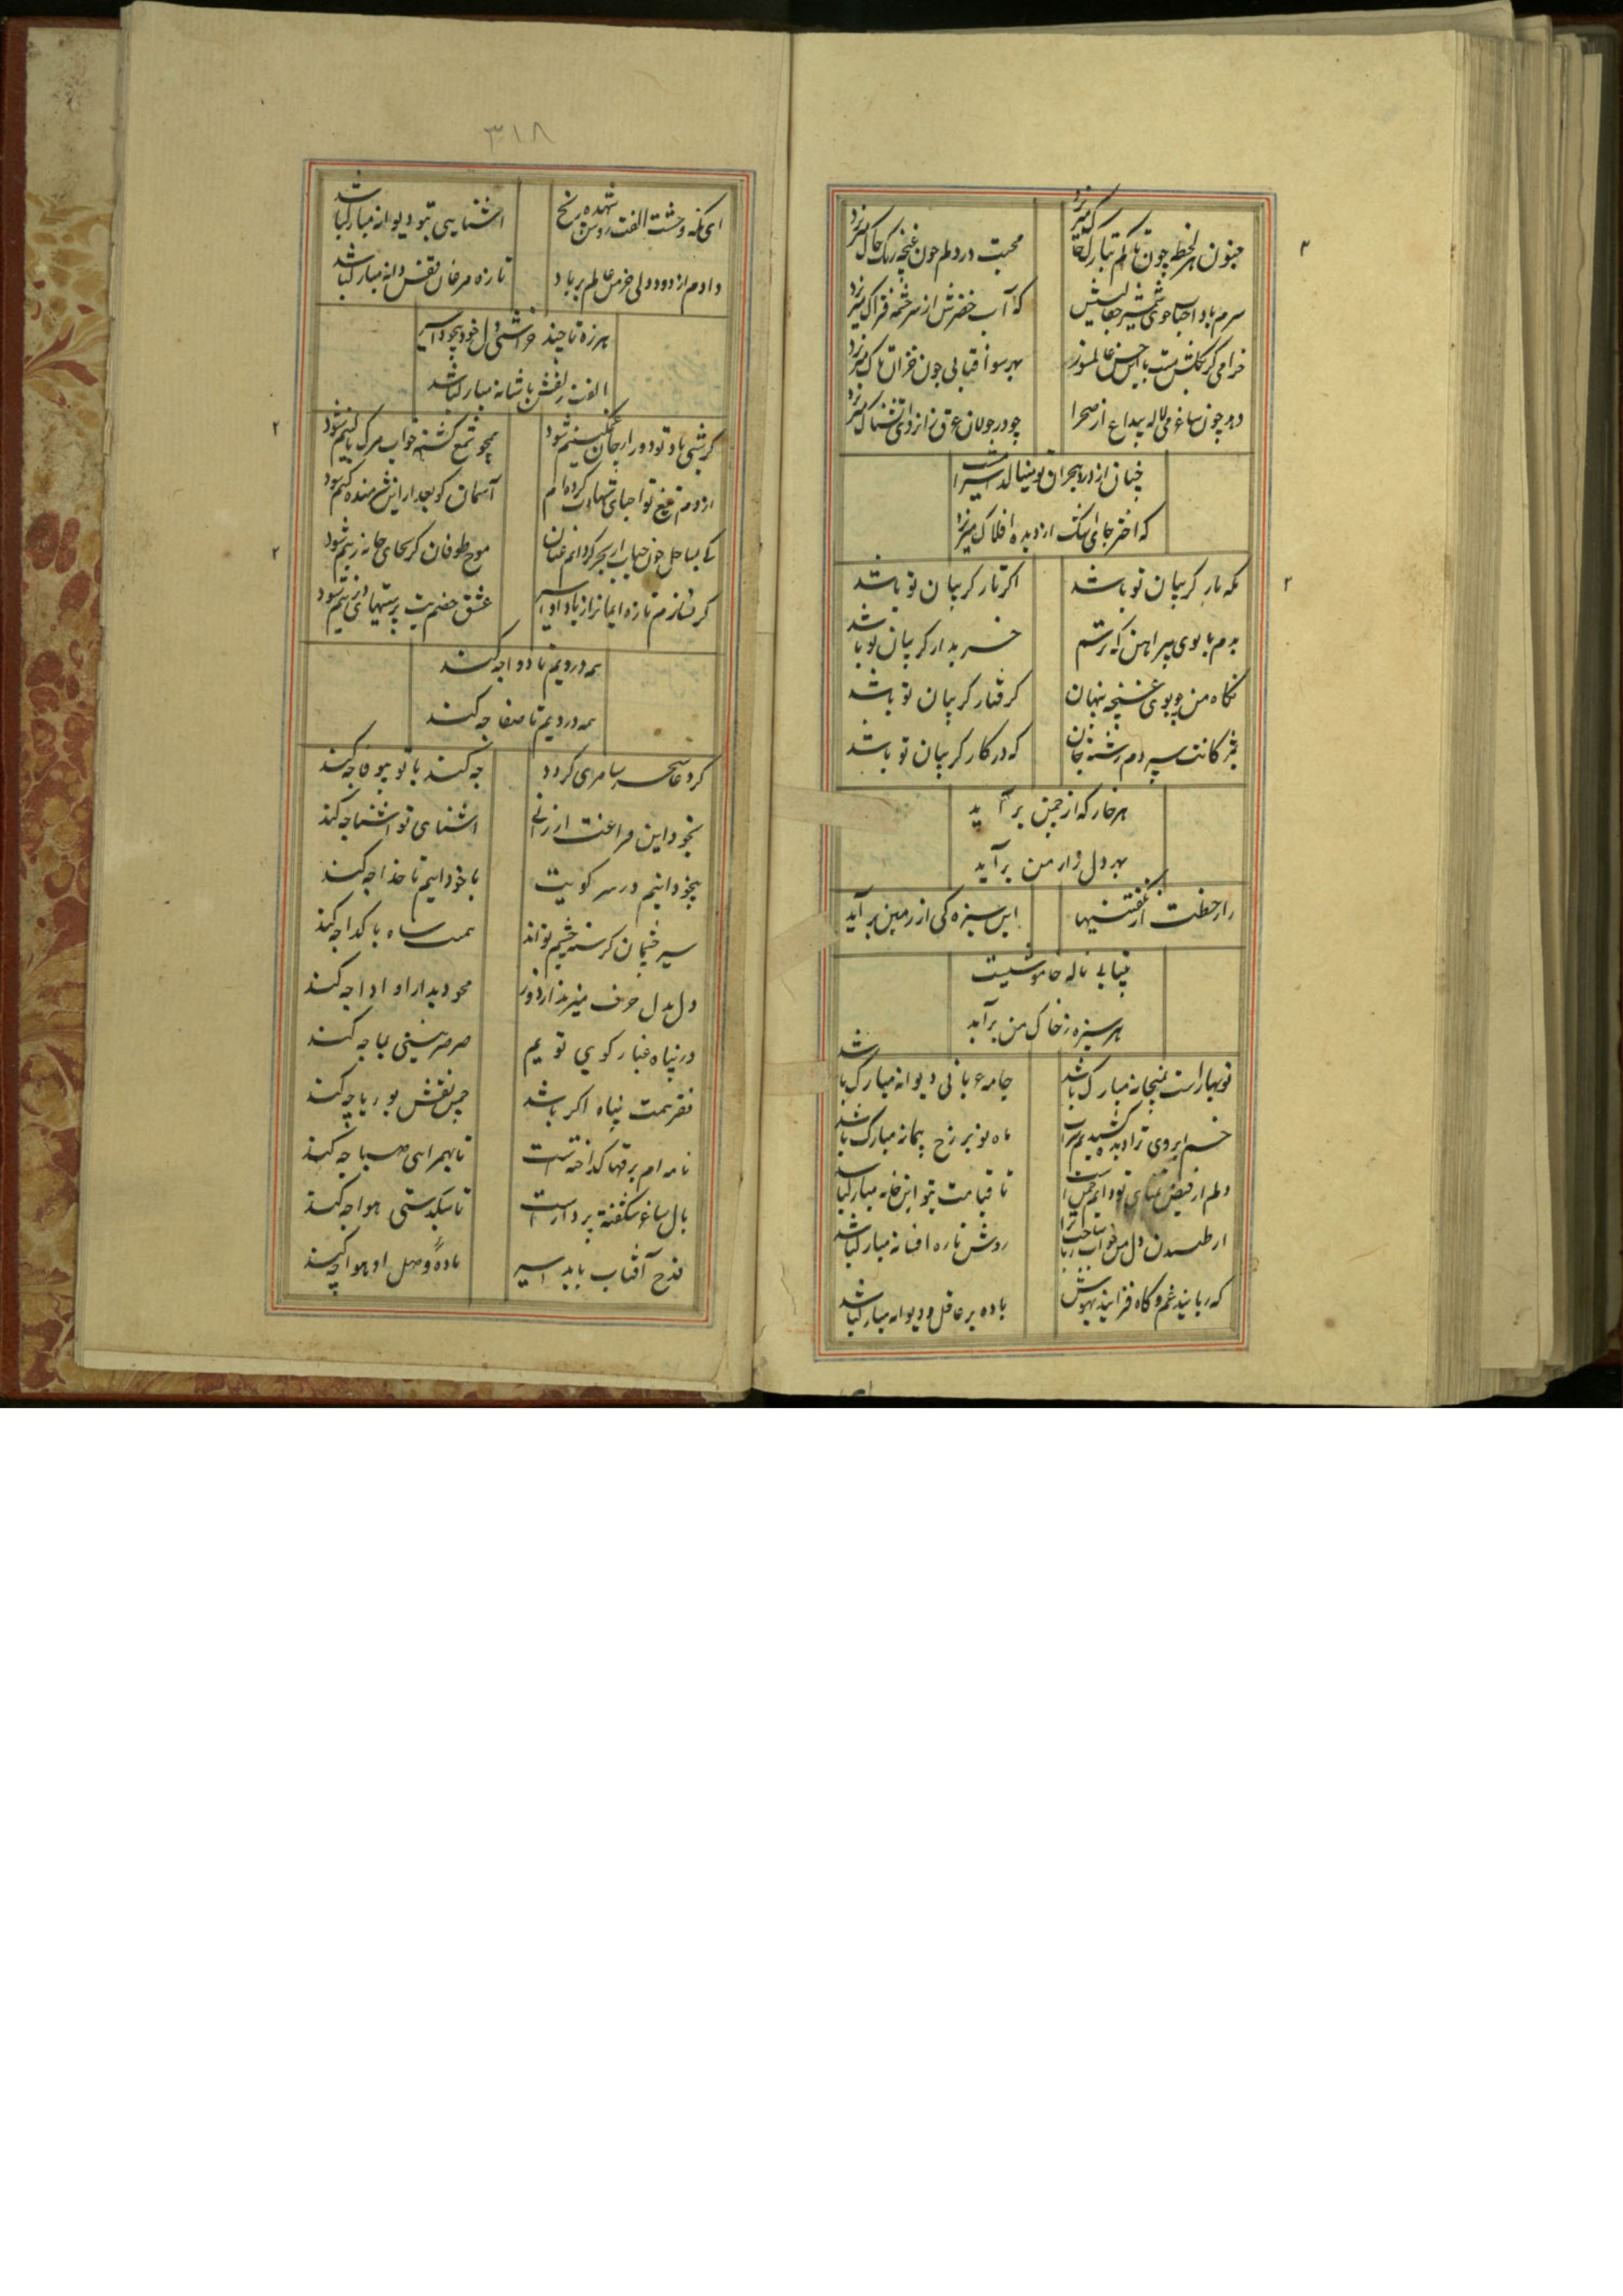 جنون هر لحظه چون تاکم تبارک خاک میریزد
محبت در دلم چون غنچه رنک چاک میریزد
سرم باد احباب جوی شمشیر جفایش
که آب خضرش از سرچشمه فتراک میریزد
خرامی کر کند مست با این حسن عالمسوز
بهر سو آفتابی چون خزان تاک میریزد
دهد چون ساغر می لاله بیداغ از صحرا
چو در جولان عرق زان روی آتشناک میریزد
چنان از درد هجران تو مینالد اسیر امشب
که اختر جای اشک از دیده افلاک میریزد
مکه تار کریبان تو باشد
اکر تار کریبان تو باشد
بدم با بوی پیراهن که رشتم
خریدار کریبان تو باشد
نکاه من چو بوی غنچه پنهان
کرفتار کریبان تو باشد
بمژکانت سپردم رشته جان
که در کار کریبان تو باشد
هر خار که از چمن برآید
بهر دل زار من برآید
راز خطت از نکفتنیها
این سبزه کی از زمین برآید
بیتابی ناله خاموشیست
هر سبزه ز خاک من برآید
نوبهار است بمیخانه مبارک باشد
جامه عریانی دیوانه مبارک باشد
خم ابروی ترا دیده کشیدیم شراب
ماه نو بر رخ پیمانه مبارک باشد
دلم از فیض تمنای تو دایم چمن است
تا قیامت بتو این خانه مبارکباشد
از طپیدن دل من خواب ربا ساخت ترا
روش تازه افسانه مبارکباشد
که ربایند غم و کاه فزایند بهوش
باده بر عاقل و دیوانه مبارکباشد
۳۱۸
ای که وحشت الفت روشن شده رخ
آشنایی بتو دیوانه مبارکباشد
دادم از دود دلی خرمن عالم بر باد
تازه مرغان قفس دانه مبارکباشد
هرزه تا چند خراشی دل خود همچو اسیر
الفت زلفش با شانه مبارکباشد
کر شبی یاد تو دور از جان غمکینم شود
همچو شمع کشته خواب مرک بالینم شود
از دم تیغ تو احیای شهادت کرده ام
آسمان کو بعد از این شرمنده کینم شود
کی بساحل چون حباب از بحر کردانم عنان
موج طوفان کر بجای خانه زینم شود
کر نسازم تازه ایمانرا ز یاد او اسیر
عشق خصم بت پرستیهای دیرینم شود
همه دردیم تا دوا چه کند
همه دردیم تا صفا چه کند
کرد عاشق سحر سامری کردد
چه کند با تو بیوفا چه کند
بخود این فراغت ارزانی
آشنای تو آشنا چه کند
بیخودانیم در سر کویت
با خودانیم تا خدا چه کند
سیر چشمان کرسنه چشم تواند
همت شاه با کدا چه کند
دل بدل حرف میزند از دور
محو دیدار او ادا چه کند
در پناه غبار کوی توییم
صرصر بینی بما چه کند
فقر همت پناه اکر باشد
چین نقش بوریا چه کند
نامه ام برقها کداخته است
تا بهمراهی صبا چه کند
بال ساغر شکفته پرداز است
تا سبکدستی هوا چه کند
قدح آفتاب باید اسیر
باده وصل او هوا چه کند